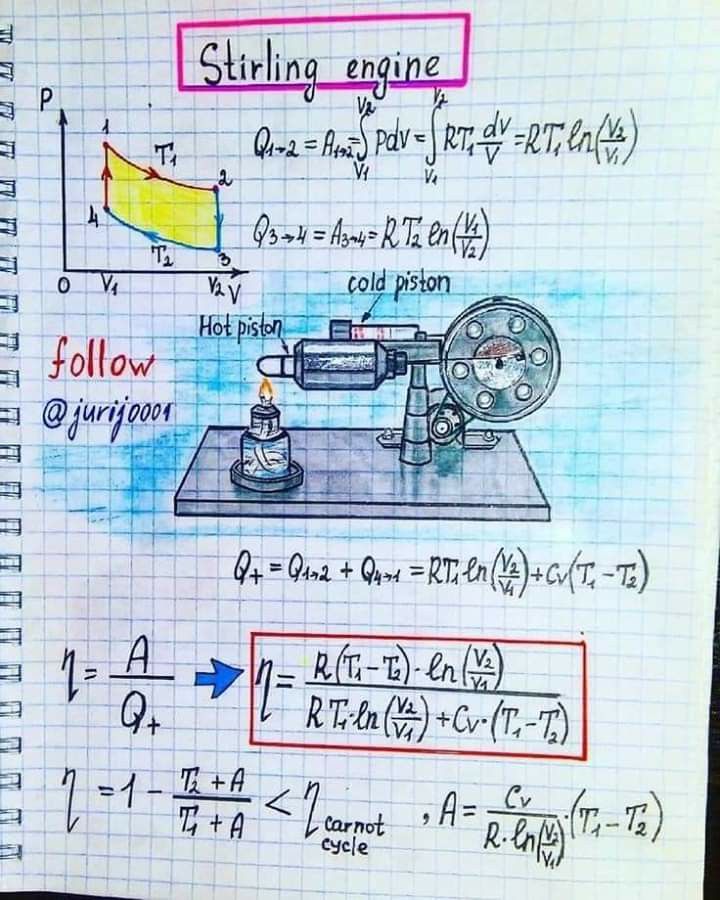 Stirling engine
P
1
T₁
2
4
T₂
3
0 V₁ V₂ V
Q₁→₂ = A₁→₂ = ∫_{V₁}^{V₂} PdV = ∫_{V₁}^{V₂} RT₁ dV/V = RT₁ ln(V₂/V₁)
Q₃→₄ = A₃→₄ = RT₂ ln(V₁/V₂)
cold piston
Hot piston
follow
@jurij0001
Q₊ = Q₁→₂ + Q₄→₁ = RT₁ ln(V₂/V₁) + Cv(T₁ - T₂)
η = A/Q₊ → η = (R(T₁ - T₂) · ln(V₂/V₁)) / (RT₁ · ln(V₂/V₁) + Cv · (T₁ - T₂))
η = 1 - (T₂ + A)/(T₁ + A) < η carnot cycle , A = Cv/(R · ln(V₂/V₁)) · (T₁ - T₂)